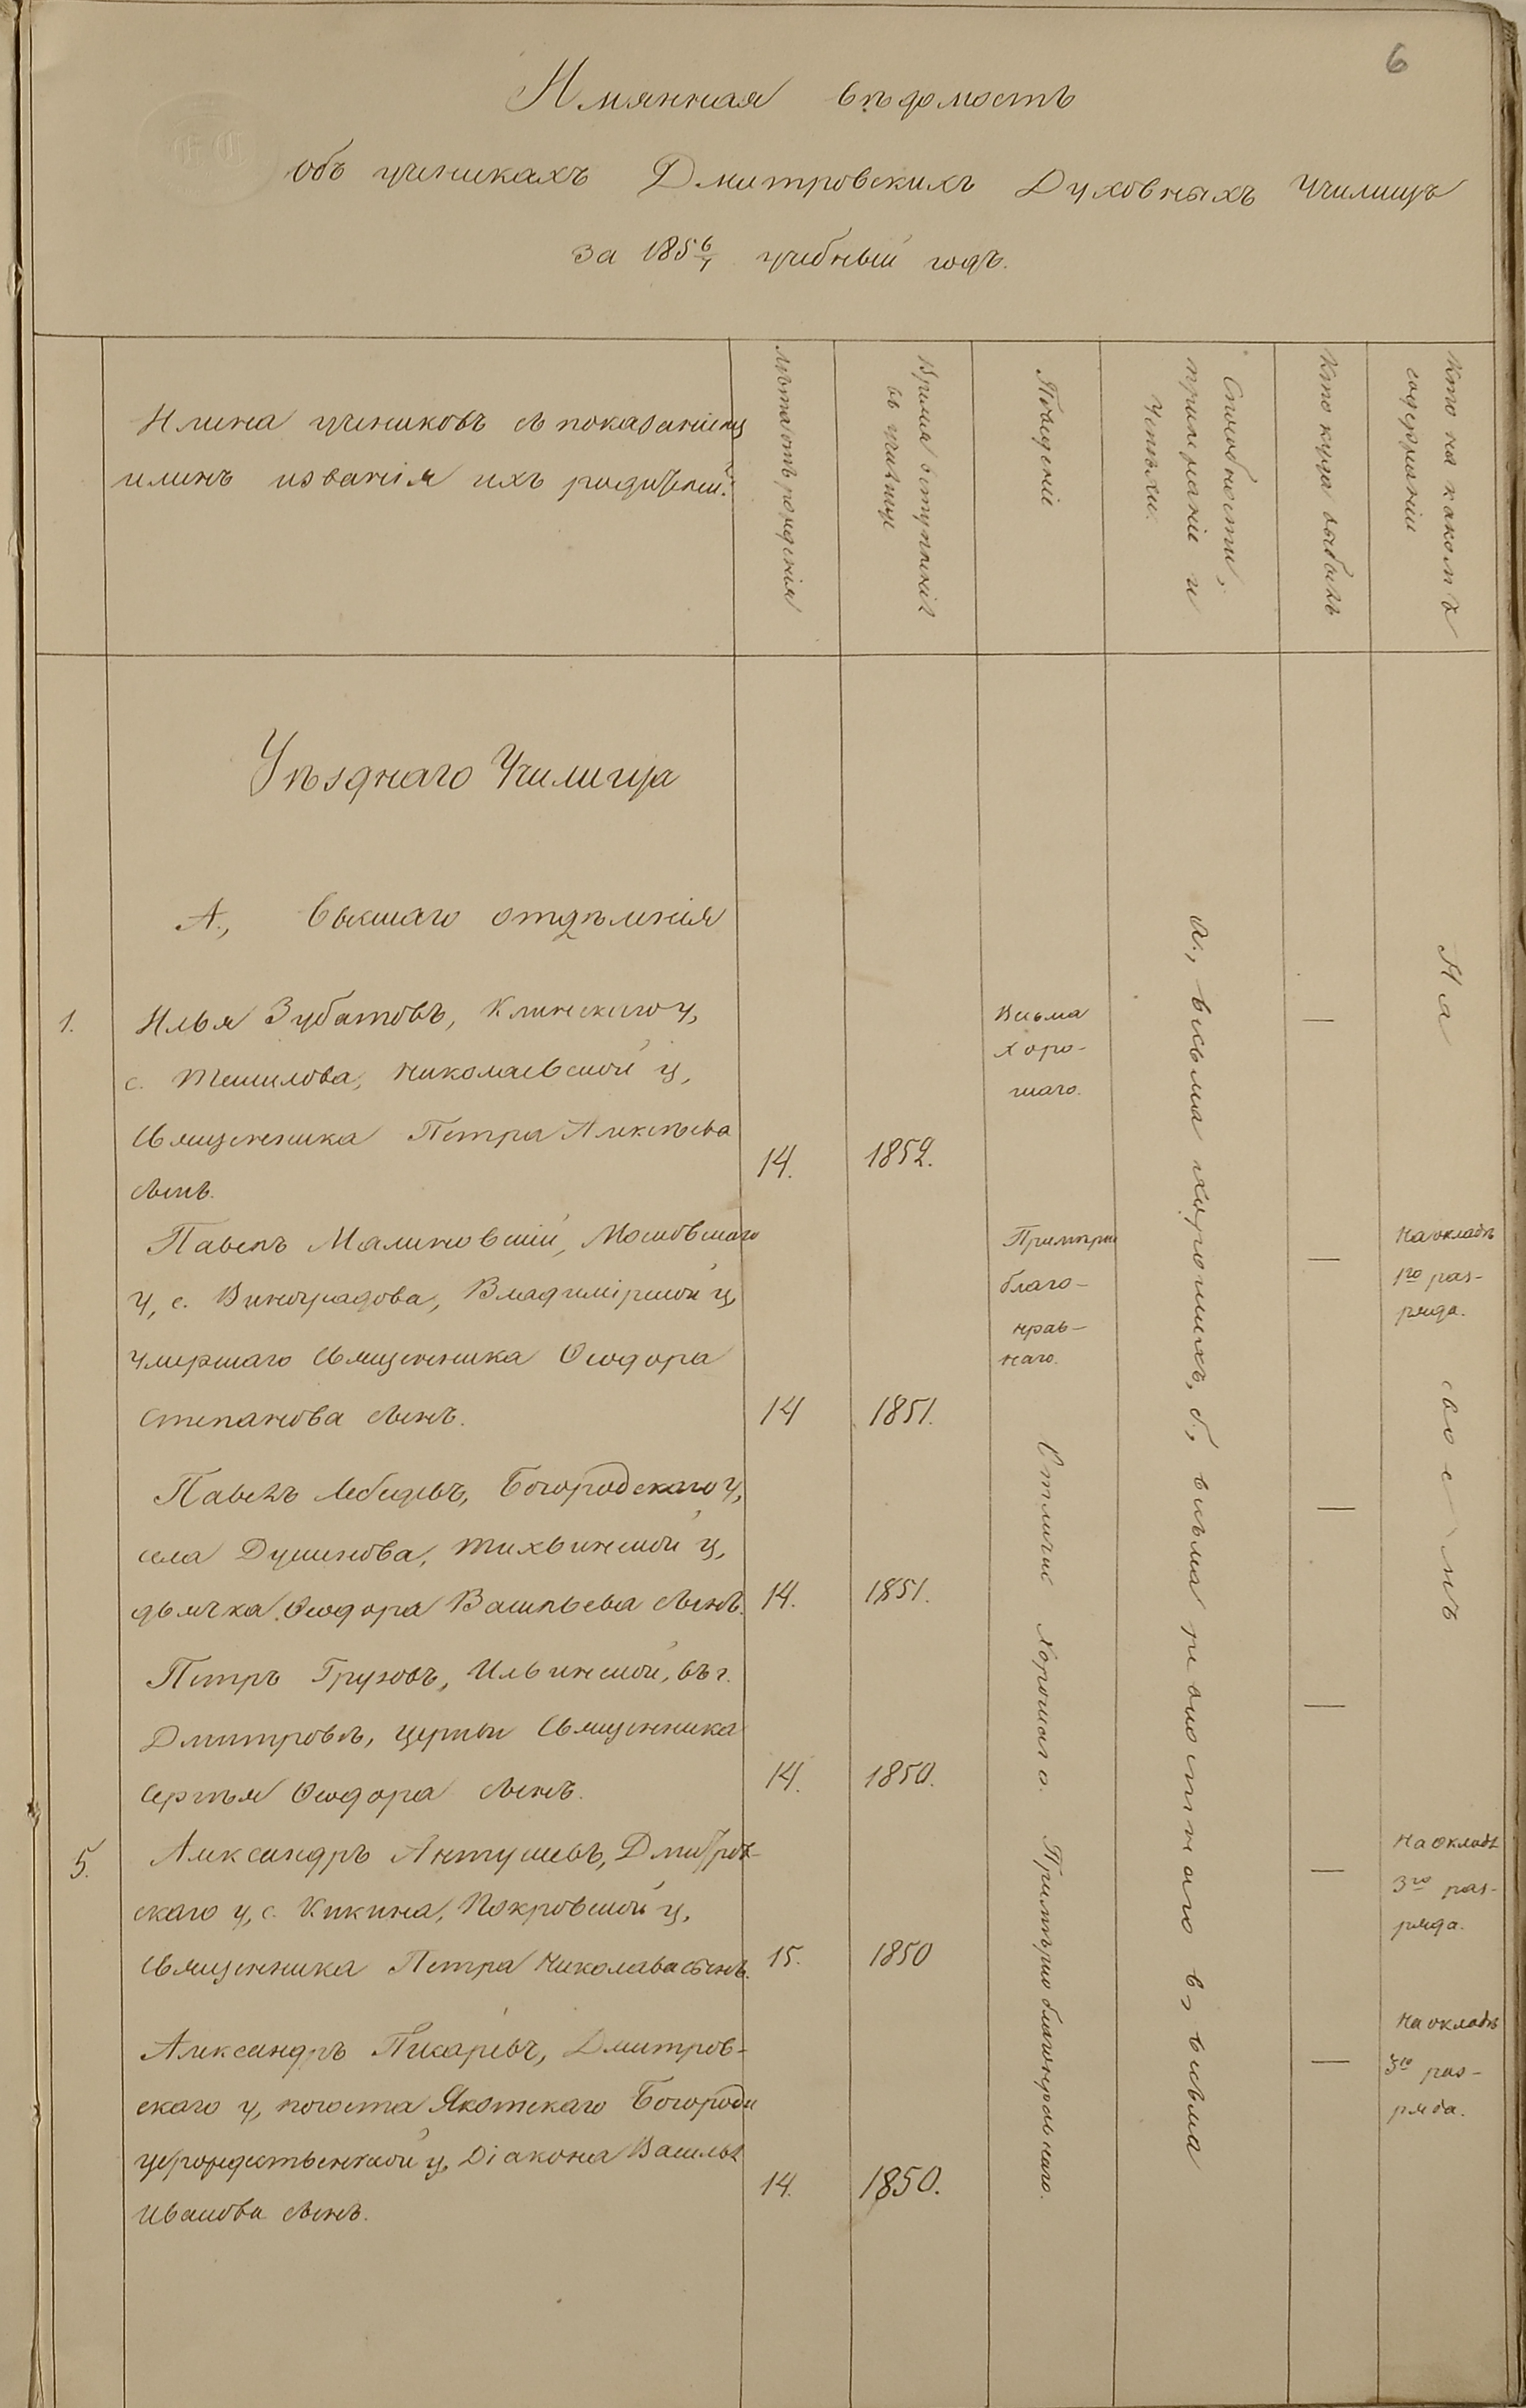 6
Имянная вѣдомость
объ ученикахъ Дмитровскихъ Духовныхъ Училищъ
за 185 6/7 учебный годъ.
Имена учениковъ съ показаніемъ
именъ и званія ихъ родителей.
Лѣта отъ рожденія
Время вступленія
въ училище
Поведеніе
Способности,
прилежаніе и
успѣхи.
Кто куда выбылъ
Кто на какомъ
содержаніи
Уѣзднаго Училища
А., Высшаго отдѣленія
1.
Илья Зубатовъ, Клинскаго у,
с. Тешилова, Николаевской ц,
Священника Петра Алексѣева
сынъ.
14.
1852.
Весьма
хоро-
шаго.
—
Павелъ Малиновскій, Московскаго
у, с. Виноградова, Владимірской ц,
умершаго Священника Ѳеодора
Степанова сынъ.
14
1851.
Примѣрно
благо-
нрав-
наго.
—
На окладѣ
1го раз-
ряда.
Павелъ Лебедевъ, Богородскаго у,
села Душонова, Тихвинской ц,
дьячка Ѳеодора Васильева сынъ.
14.
1851.
Отлично хорошаго.
—
Петръ Грузовъ, Ильинской, въ г.
Дмитровѣ, церкви Священника
Сергѣя Ѳеодора сынъ.
14.
1850.
—
5.
Александръ Антушевъ, Дмитров-
скаго у, с. Кикина, Покровской ц,
Священника Петра Николаева сынъ.
15.
1850
Примѣрно благонравнаго.
—
На окладѣ
3го раз-
ряда.
Александръ Писаревъ, Дмитров-
скаго у, погоста Якотскаго Богороди
церождественской ц, Діакона Василья
Иванова сынъ.
14.
1850.
—
На окладѣ
3го раз-
ряда.
а., весьма хорошихъ, б., весьма ревностнаго в, весьма
На своемъ